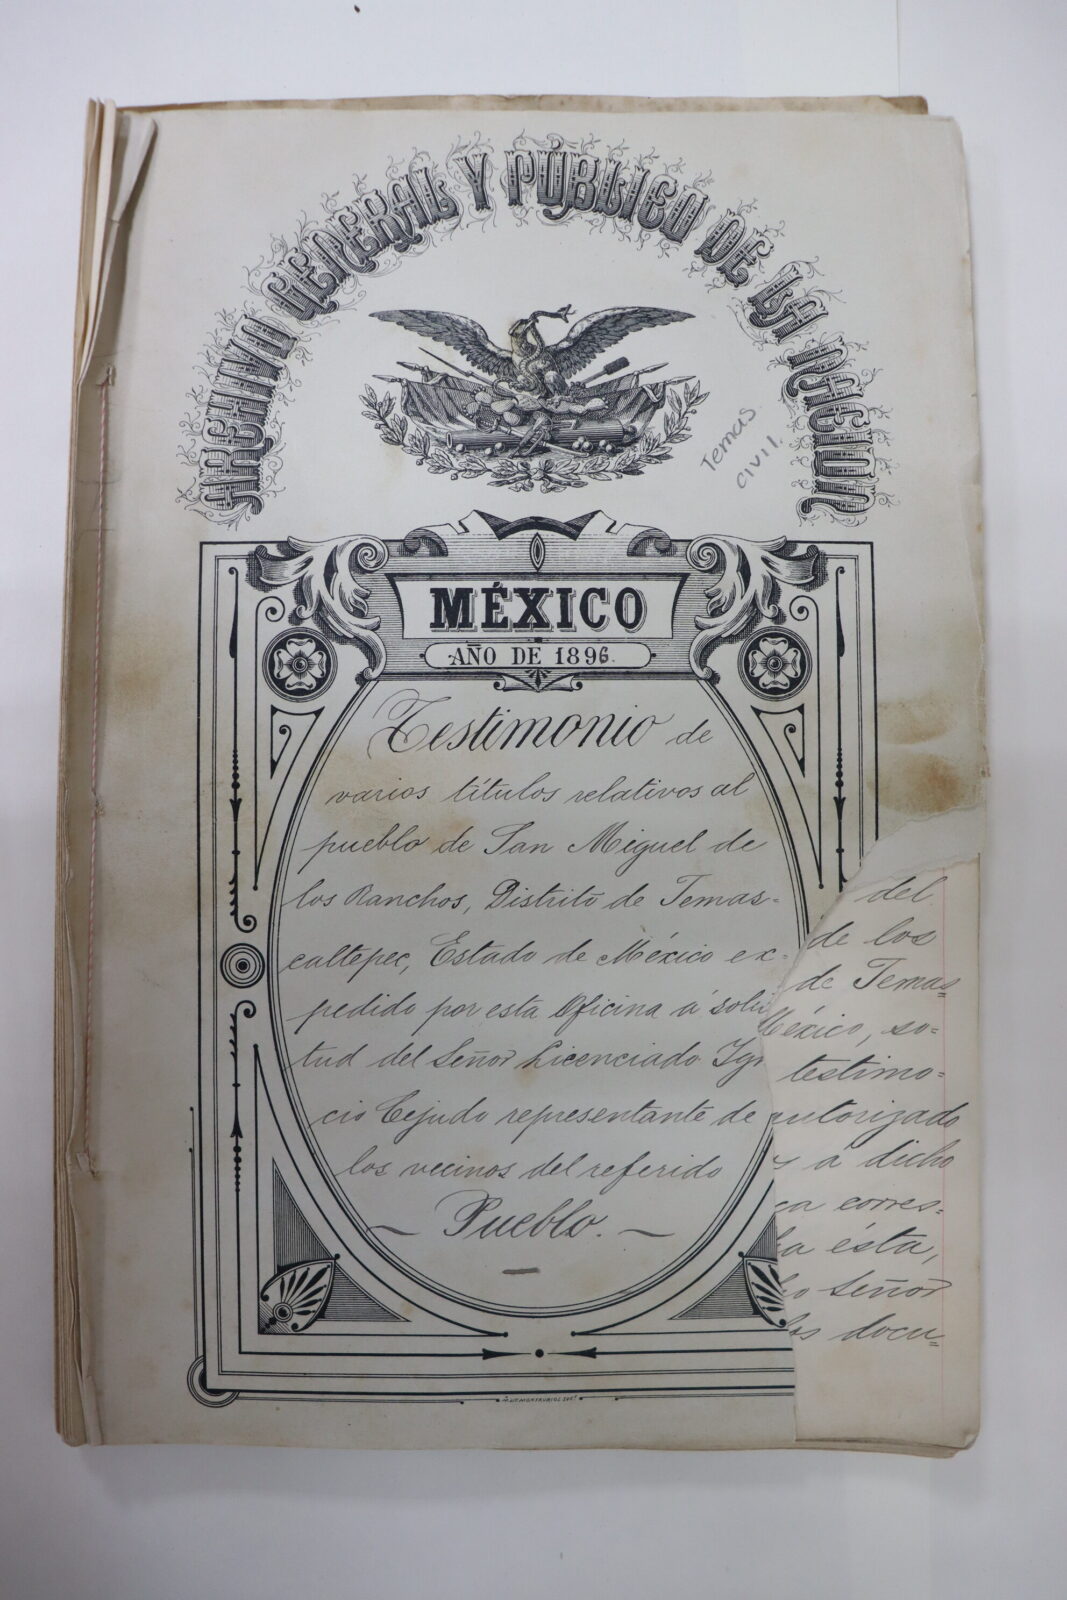 ARCHIVO GENERAL Y PÚBLICO DE LA NACION
Temas
civil.
MÉXICO
AÑO DE 1896.
Testimonio de
varios títulos relativos al
pueblo de San Miguel de
los Ranchos, Distrito de Temas-
caltepec, Estado de México ex-
pedido por esta Oficina á soli
tud del Señor Licenciado Ign
cio Cejudo representante de
los vecinos del referido
Pueblo.
del
de los
de Temas-
México, so-
testimo-
autorizado
y á dicho
corres-
ésta,
Señor
los docu-